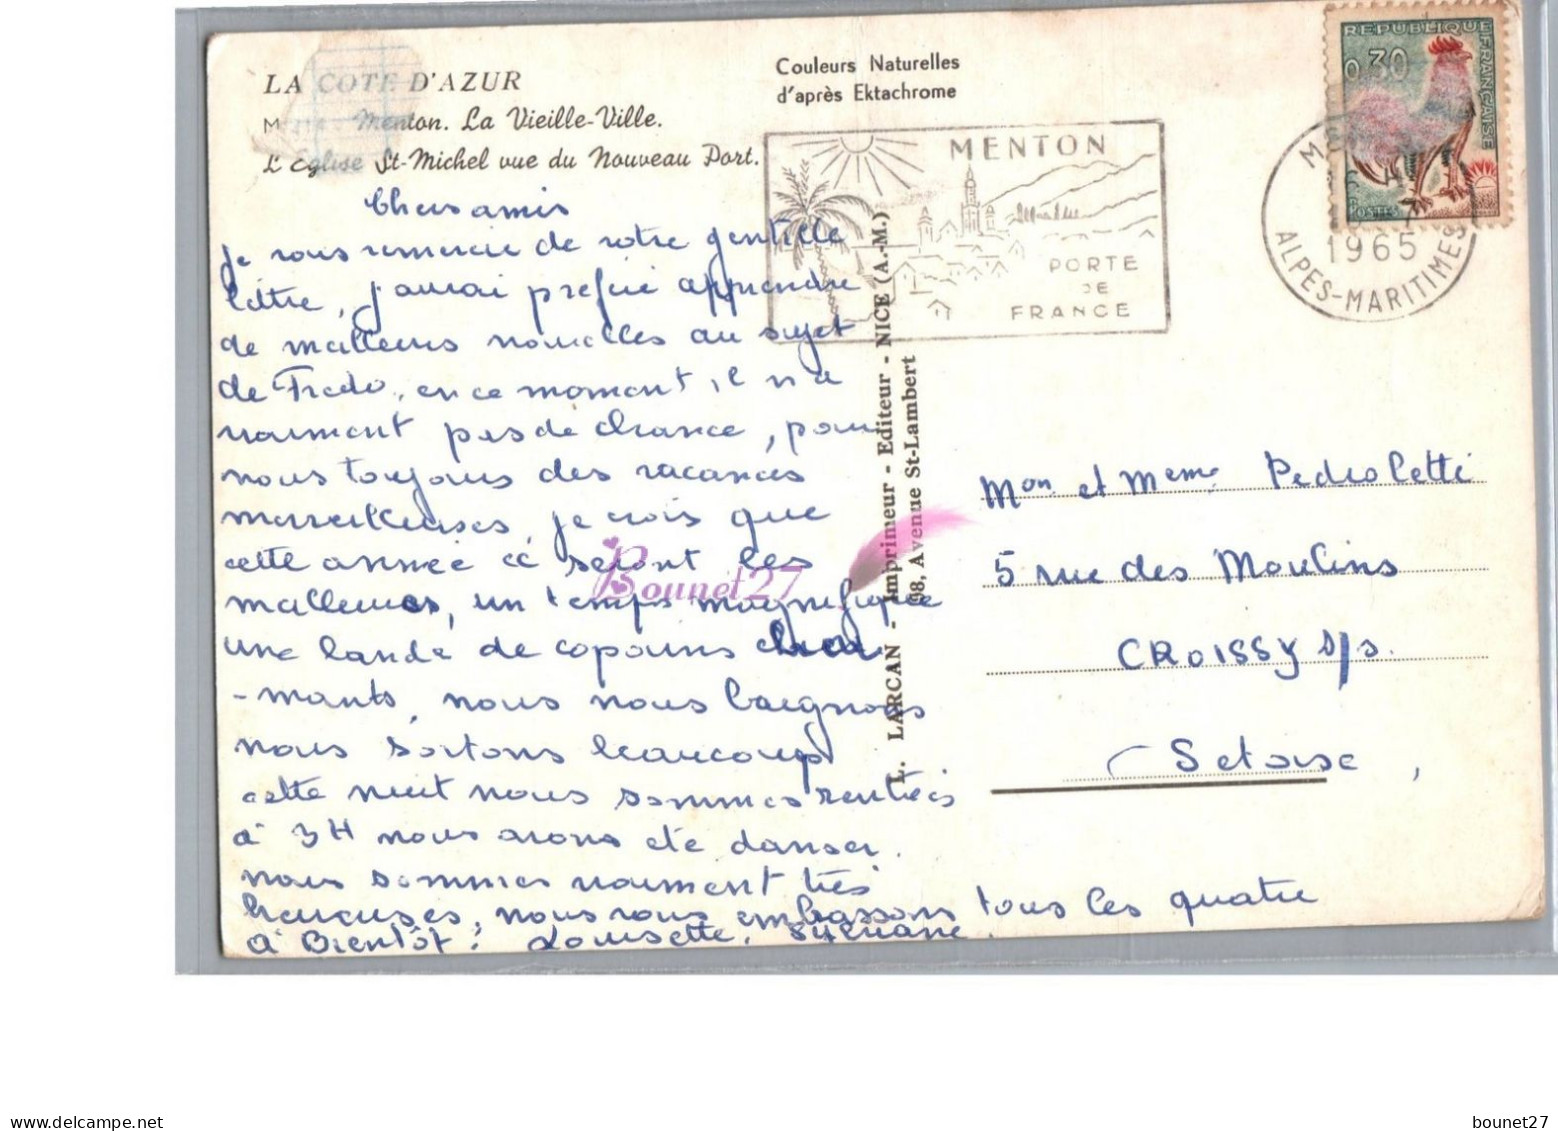 LA COTE D'AZUR
Menton. La Vieille-Ville.
L'Eglise St-Michel vue du Nouveau Port.
Couleurs Naturelles
d'après Ektachrome
MENTON
PORTE
DE
FRANCE
REPUBLIQUE FRANÇAISE
0,30
POSTES
1965
ALPES-MARITIMES
Chers amis
Je vous remercie de votre gentille
lettre, j'aurai préféré apprendre
de meilleurs nouvelles au sujet
de Fredo, en ce moment, il n'a
vraiment pas de chance, pour
nous toujours des vacances
merveilleuses, je crois que
cette année ce seront les
meilleures, un temps magnifique
une bande de copains char
-mants, nous nous baignons
nous sortons beaucoup
cette nuit nous sommes rentrées
à 3H nous avons été danser.
nous sommes vraiment très
heureuses, nous vous embrassons tous les quatre
à Bientôt. Louisette, Sylviane.
L. LARCAN - Imprimeur - Editeur - NICE (A.-M.)
98, Avenue St-Lambert
Mon et Meme Pedroletti
5 rue des Moulins
CROISSY s/s.
Set oise,
Bounet27
bounet27